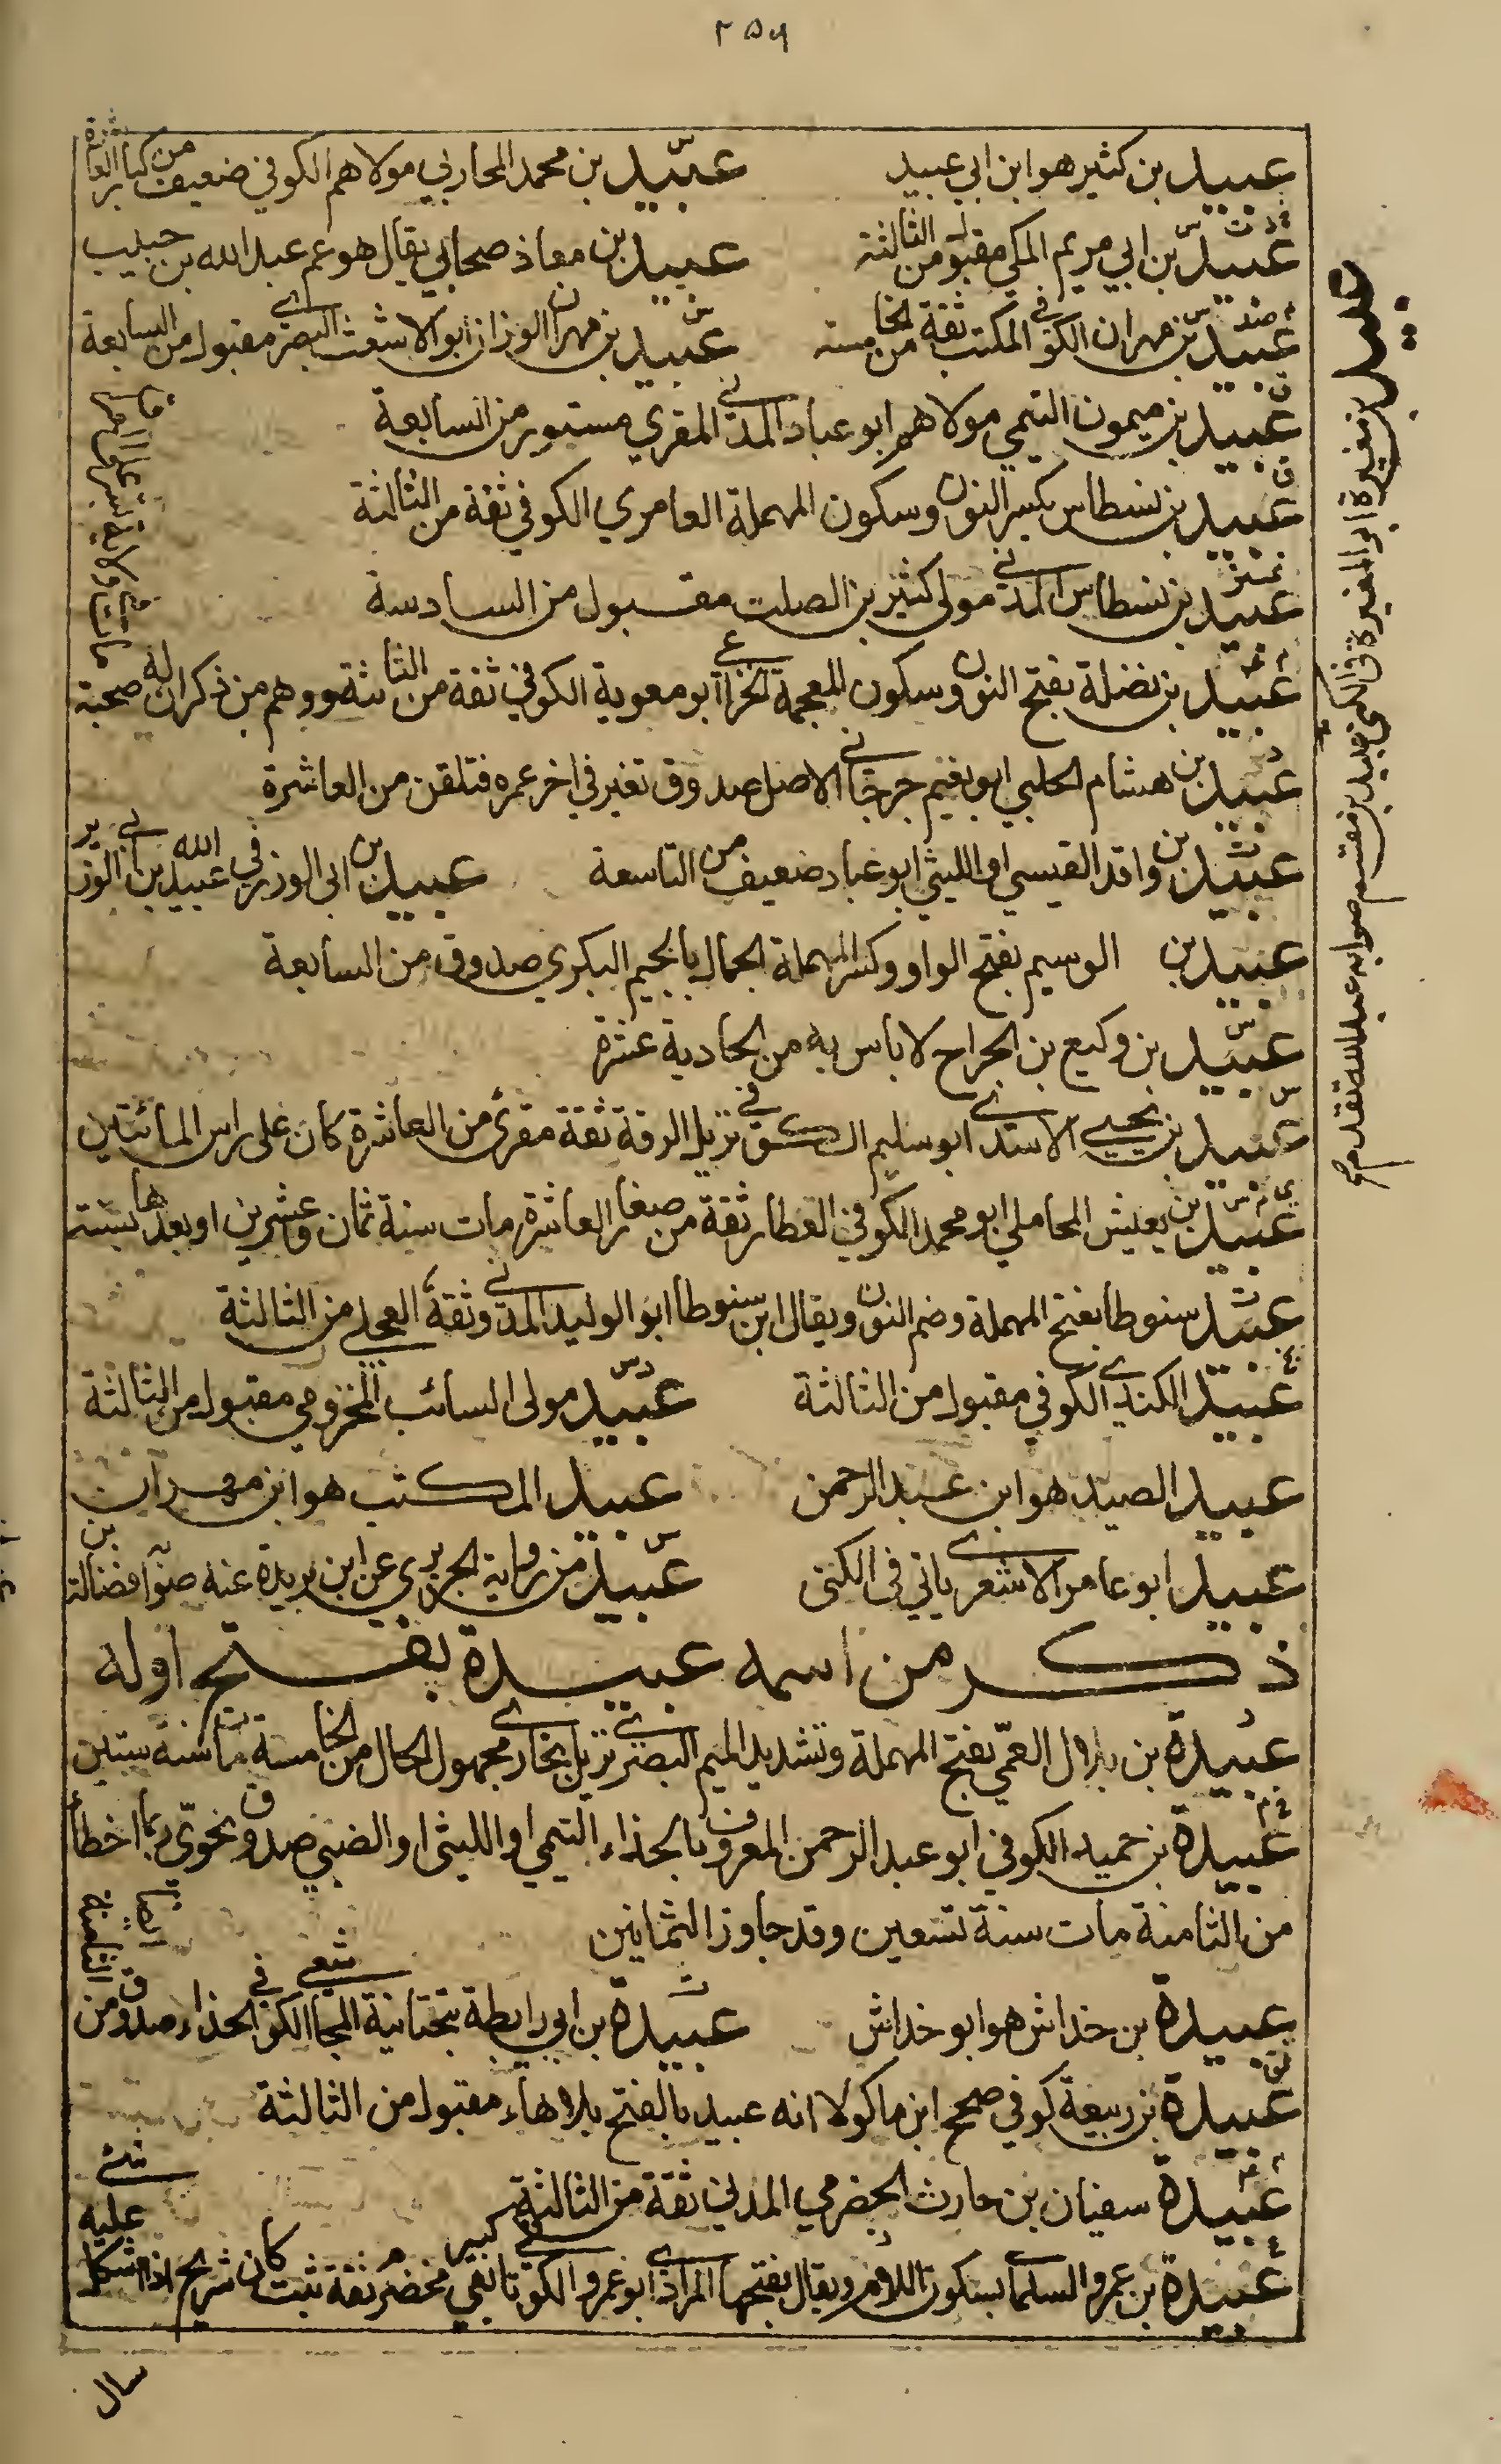 ٢٥٦
عبيد بن كثير هو ابن ابي عبيد عبيد بن محمد المحاربي مولاهم الكوفي ضعيف من كبار العاشرة
عبيد بن ابي مريم المكي مقبول من الثالثة عبيد بن معاذ صحابي يقال هو عم عبد الله بن حبيب
عبيد بن مهران الكوفي المكتب ثقة من الخامسة عبيد بن مهران الوزان ابو الاشعث البصري مقبول من السابعة
عبيد بن ميمون التيمي مولاهم ابو عباد المدني المقري مستور من السابعة
عبيد بن نسطاس بكسر النون وسكون المهملة العامري الكوفي ثقة من الثالثة
عبيد بن نسطاس المدني مولى كثير بن الصلت مقبول من السادسة
عبيد بن نضلة بفتح النون وسكون المعجمة الخزاعي ابو معوية الكوفي ثقة من الثانية ووهم من ذكر ان له صحبة
عبيد بن هشام الحلبي ابو نعيم جرجاني الاصل صدوق تغير في اخر عمره فتلقن من العاشرة
عبيد بن واقد القيسي او الليثي ابو عباد ضعيف من التاسعة عبيد بن ابي الوزر في عبيد الله بن ابي الوزير
عبيد بن الوسيم بفتح الواو وكسر المهملة الجمال بالجيم البكري صدوق من السابعة
عبيد بن وكيع بن الجراح لا باس به من الحادية عشرة
عبيد بن يحيى الاسدي ابو سليم الكوفي نزيل الرقة ثقة مقرئ من العاشرة كان على راس المائتين
عبيد بن يعيش المحاملي ابو محمد الكوفي العطار ثقة من صغار العاشرة مات سنة ثمان وعشرين او بعدها بسنة
عبيد سنوطا بفتح المهملة وضم النون ويقال ابن سنوطا ابو الوليد المدني وثقه العجلي من الثالثة
عبيد الكندي الكوفي مقبول من الثالثة عبيد مولى السائب المخزومي مقبول من الثالثة
عبيد الصيد هو ابن عبد الرحمن عبيد المكتب هو ابن مهران
عبيد ابو عامر الاشعري ياتي في الكنى عبيد من رواية الجريري عن ابن بريدة عنه صوابه فضالة بن
ذكر من اسمه عبيدة بفتح اوله
عبيدة بن بلال العمّي بفتح المهملة وتشديد الميم البصري نزيل بخارى مجهول الحال من الخامسة مات سنة ستين
عبيدة بن حميد الكوفي ابو عبد الرحمن المعروف بالحذاء التيمي او الليثي او الضبي صدوق نحويّ ربما اخطأ
من الثامنة مات سنة تسعين وقد جاوز الثمانين
عبيدة بن خداش هو ابو خداش عبيدة بن ابي رايطة بتحتانية المجاشعي الكوفي الحذاء صدوق من الثامنة ايضا
عبيدة بن ربيعة كوفي صحح ابن ماكولا انه عبيد بالفتح بلا هاء مقبول من الثالثة
عبيدة سفيان بن حارث الحضرمي المدني ثقة من الثالثة
عبيدة بن عمرو السلماني بسكون اللام ويقال بفتحها المرادي ابو عمرو الكوفي تابعي كبير مخضرم ثقة ثبت كان شريح اذا اشكل عليه شئ
سال
عبيد بن مغيرة ابو المغيرة في الكنى
عبيد بن مقسم صوابه عبد الله تقدم